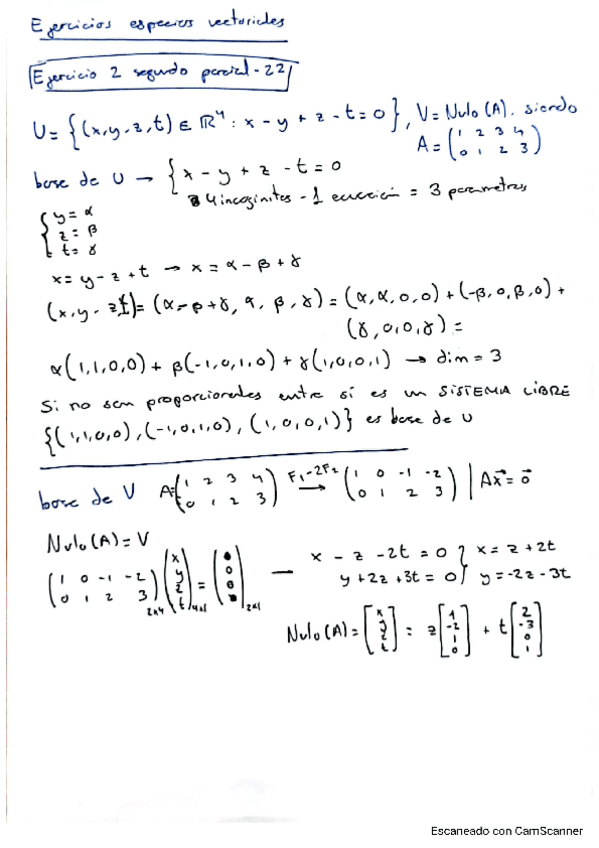 Ejercicios espacios vectoriales
Ejercicio 2 segundo parcial - 22
U = {(x,y,z,t) ∈ ℝ⁴ : x - y + z - t = 0}, V = Nulo(A). siendo
A = (1 2 3 4
0 1 2 3)
base de U → {x - y + z - t = 0
4 incognitas - 1 ecuación = 3 parametros
{y = α
z = β
t = γ
x = y - z + t → x = α - β + γ
(x,y,z,t) = (α - β + γ, α, β, γ) = (α, α, 0, 0) + (-β, 0, β, 0) +
(γ, 0, 0, γ) =
α(1,1,0,0) + β(-1,0,1,0) + γ(1,0,0,1) → dim = 3
Si no son proporcionales entre sí es un SISTEMA LIBRE
{(1,1,0,0), (-1,0,1,0), (1,0,0,1)} es base de U
base de V A = (1 2 3 4 F1-2F2 (1 0 -1 -2 | Ax⃗ = 0⃗
0 1 2 3) → 0 1 2 3)
Nulo(A) = V
(1 0 -1 -2
0 1 2 3) 2x4 (x y z t) 4x1 = (0 0) 2x1 — x - z - 2t = 0 } x = z + 2t
y + 2z + 3t = 0 } y = -2z - 3t
Nulo(A) = [x y z t] = z [1 -2 1 0] + t [2 -3 0 1]
Escaneado con CamScanner